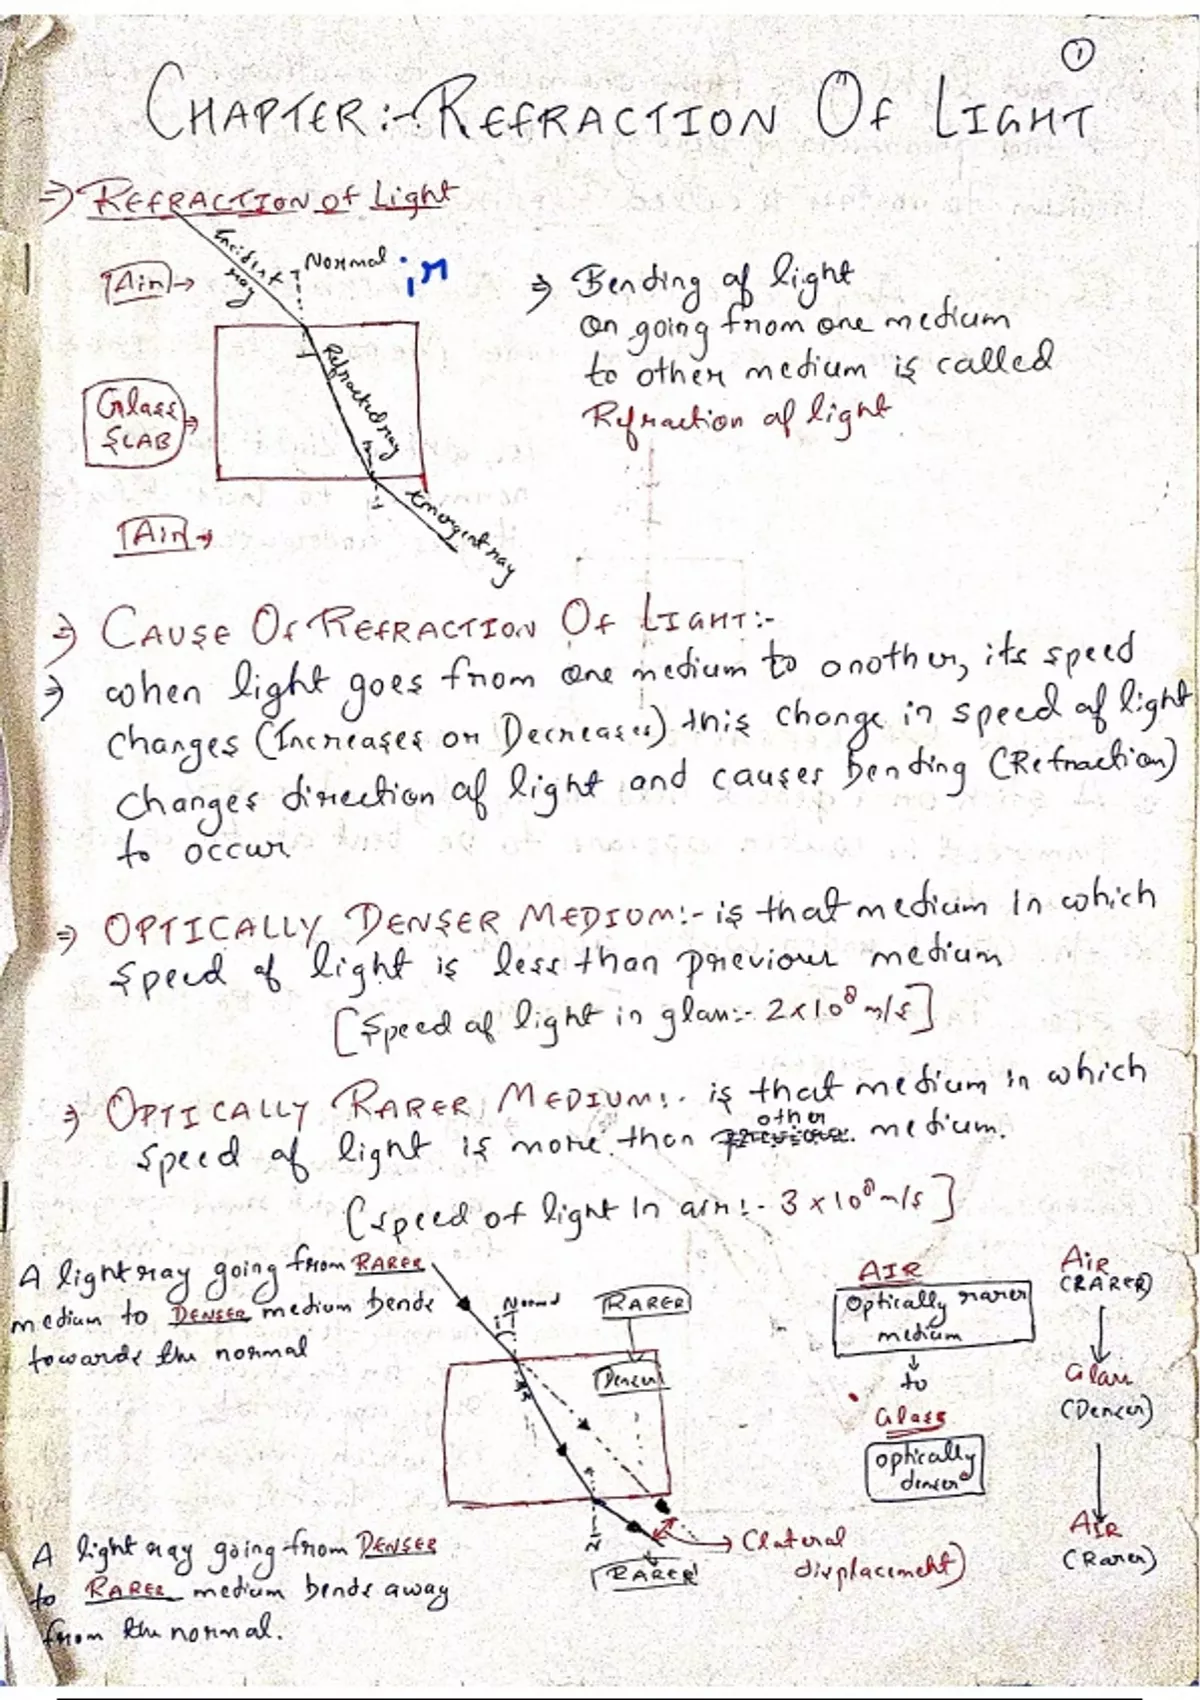 1
CHAPTER:- REFRACTION OF LIGHT
⇒ REFRACTION of Light
Incident ray
Normal
i, r
Air →
Refracted ray
Glass SLAB →
Air →
Emergent ray
⇒ Bending of light
on going from one medium
to other medium is called
Refraction of light
⇒ CAUSE OF REFRACTION OF LIGHT:-
⇒ when light goes from one medium to another, its speed
changes (Increases or Decreases) this change in speed of light
changes direction of light and causes bending (Refraction)
to occur
⇒ OPTICALLY DENSER MEDIUM:- is that medium in which
speed of light is less than previous medium
[Speed of light in glass:- 2×10⁸ m/s]
⇒ OPTICALLY RARER MEDIUM:- is that medium in which
speed of light is more than other medium.
(speed of light in air:- 3×10⁸ m/s]
A light ray going from RARER
medium to DENSER medium bends
towards the normal
Normal
i
RARER
Denser
N
RARER
→ (lateral
displacement)
AIR
Optically rarer
medium
↓
to
Glass
optically
denser
Air
(RARER)
↓
Glass
(Denser)
↓
AIR
(Rarer)
A light ray going from DENSER
to RARER medium bends away
from the normal.